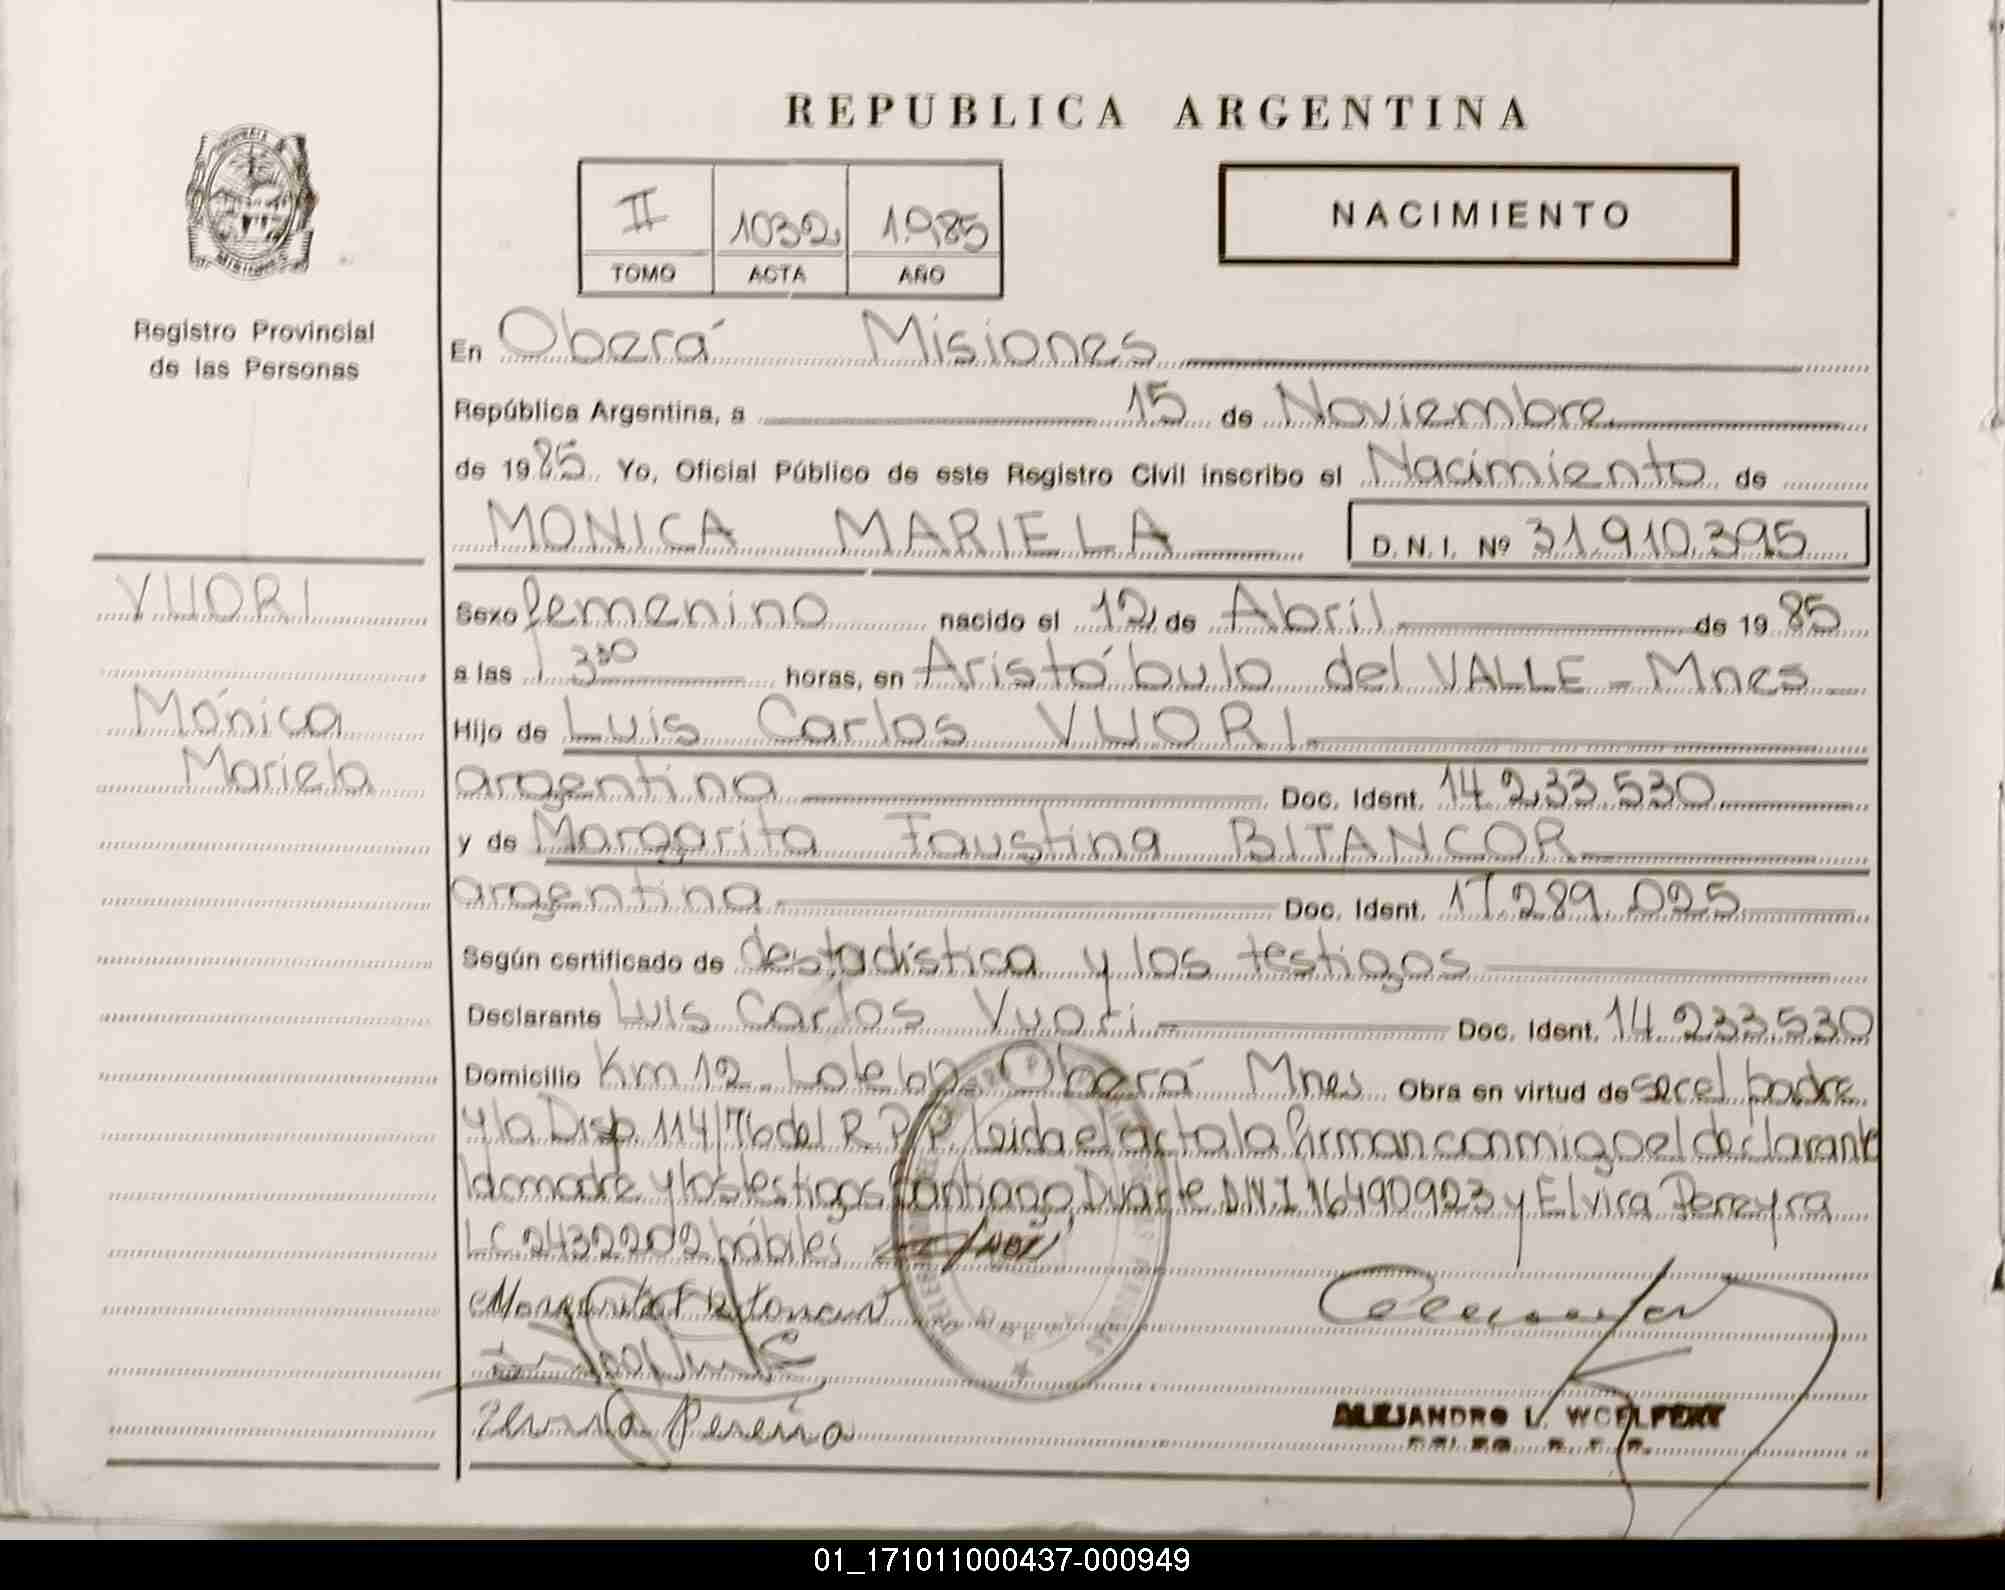 REPUBLICA ARGENTINA
II 1032 1.985
TOMO ACTA AÑO
NACIMIENTO
Registro Provincial
de las Personas
En Oberá Misiones
República Argentina, a 15 de Noviembre
de 1985 Yo, Oficial Público de este Registro Civil inscribo el Nacimiento de
MONICA MARIELA D. N. I. Nº 31.910.395
VUORI
Mónica
Mariela
Sexo femenino nacido el 12 de Abril de 1985
a las 3 30 horas, en Aristóbulo del VALLE - Mnes
Hijo de Luis Carlos VUORI
argentina Doc. Ident. 14.233.530
y de Margarita Faustina BITANCOR
argentina Doc. Ident. 17.289.025
Según certificado de destadística y los testigos
Declarante Luis Carlos Vuori Doc. Ident. 14.233.530
Domicilio Km 12 Lote Oberá Mnes Obra en virtud de ser el padre
y la Disp. 114/76 del R. P. P. Leida el acta la firman conmigo el declarante
la madre y los testigos Santiago Duarte D.N.I 16490923 y Elvira Pereyra
LC 2432202 hábiles
Margarita F Bitancur
Pereira
ALEJANDRO L. WOELFERT
01_171011000437-000949